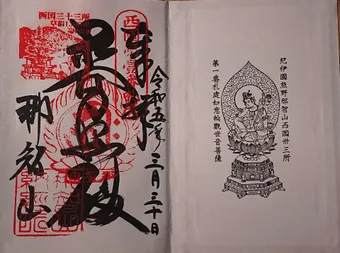 奉拝
令和五年 三月三十日
普照殿
那智山
西国三十三所
紀伊國熊野那智山西國卅三所
第一番札處如意輪觀世音菩薩